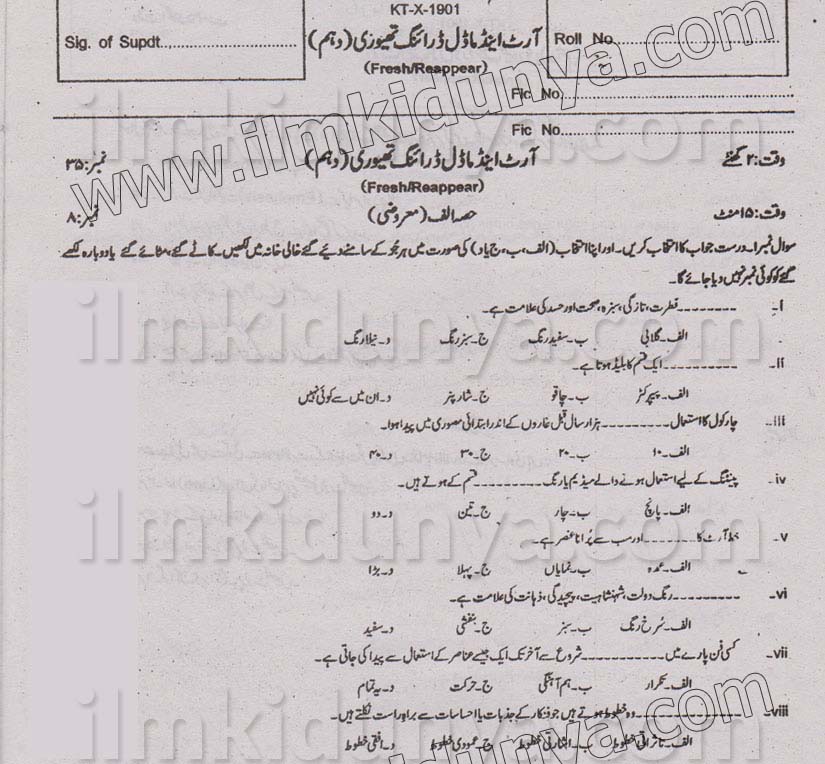 KT-X-1901
Sig. of Supdt.,.......................... آرٹ اینڈ ماڈل ڈرائنگ تھیوری (دہم) Roll No...........................
(Fresh/Reappear)
Fic No...........................
Fic No...........................
وقت: ۲ گھنٹے آرٹ اینڈ ماڈل ڈرائنگ تھیوری (دہم) نمبر: ۳۵
(Fresh/Reappear)
وقت: ۱۵ منٹ حصہ الف (معروضی) نمبر: ۸
سوال نمبر ۱۔ درست جواب کا انتخاب کریں۔ اور اپنا انتخاب (الف، ب، ج یا د) کی صورت میں ہر جُز کے سامنے دیئے گئے خالی خانہ میں لکھیں۔ کاٹے گئے، مٹائے گئے یا دوبارہ لکھے
گئے کو کوئی نمبر نہیں دیا جائے گا۔
i۔ ---------- فطرت، تازگی، سبزہ، صحت اور حسد کی علامت ہے۔
الف۔ گلابی ب۔ سفید رنگ ج۔ سبز رنگ د۔ نیلا رنگ
ii۔ ---------- ایک قسم کا بلیڈ ہوتا ہے۔
الف۔ پیپر کٹر ب۔ چاقو ج۔ شارپنر د۔ ان میں سے کوئی نہیں
iii۔ چارکول کا استعمال ---------- ہزار سال قبل غاروں کے اندر ابتدائی مصوری میں پیدا ہوا۔
الف۔ ۱۰ ب۔ ۲۰ ج۔ ۳۰ د۔ ۴۰
iv۔ پینٹنگ کے لیے استعمال ہونے والے میڈیم یا رنگ ---------- قسم کے ہوتے ہیں۔
الف۔ پانچ ب۔ چار ج۔ تین د۔ دو
v۔ خط آرٹ کا -------- اور سب سے پُرانا عنصر ہے۔
الف۔ عمدہ ب۔ نمایاں ج۔ پہلا د۔ بڑا
vi۔ ---------- رنگ دولت، شہنشاہیت، پیچیدگی، ذہانت کی علامت ہے۔
الف۔ سُرخ رنگ ب۔ سبز ج۔ بنفشی د۔ سفید
vii۔ کسی فن پارے میں ---------- شروع سے آخر تک ایک جیسے عناصر کے استعمال سے پیدا کی جاتی ہے۔
الف۔ تکرار ب۔ ہم آہنگی ج۔ حرکت د۔ یہ تمام
viii۔ ---------- وہ خطوط ہوتے ہیں جو فنکار کے جذبات یا احساسات سے براہِ راست نکلتے ہیں۔
الف۔ تاثراتی خطوط ب۔ اشارتی خطوط ج۔ عمودی خطوط د۔ افقی خطوط
www.ilmkidunya.com
ilmkidunya.com
ilmkidunya.com
ilmkidunya.com
ilmkidunya.com
www.ilmkidunya.com